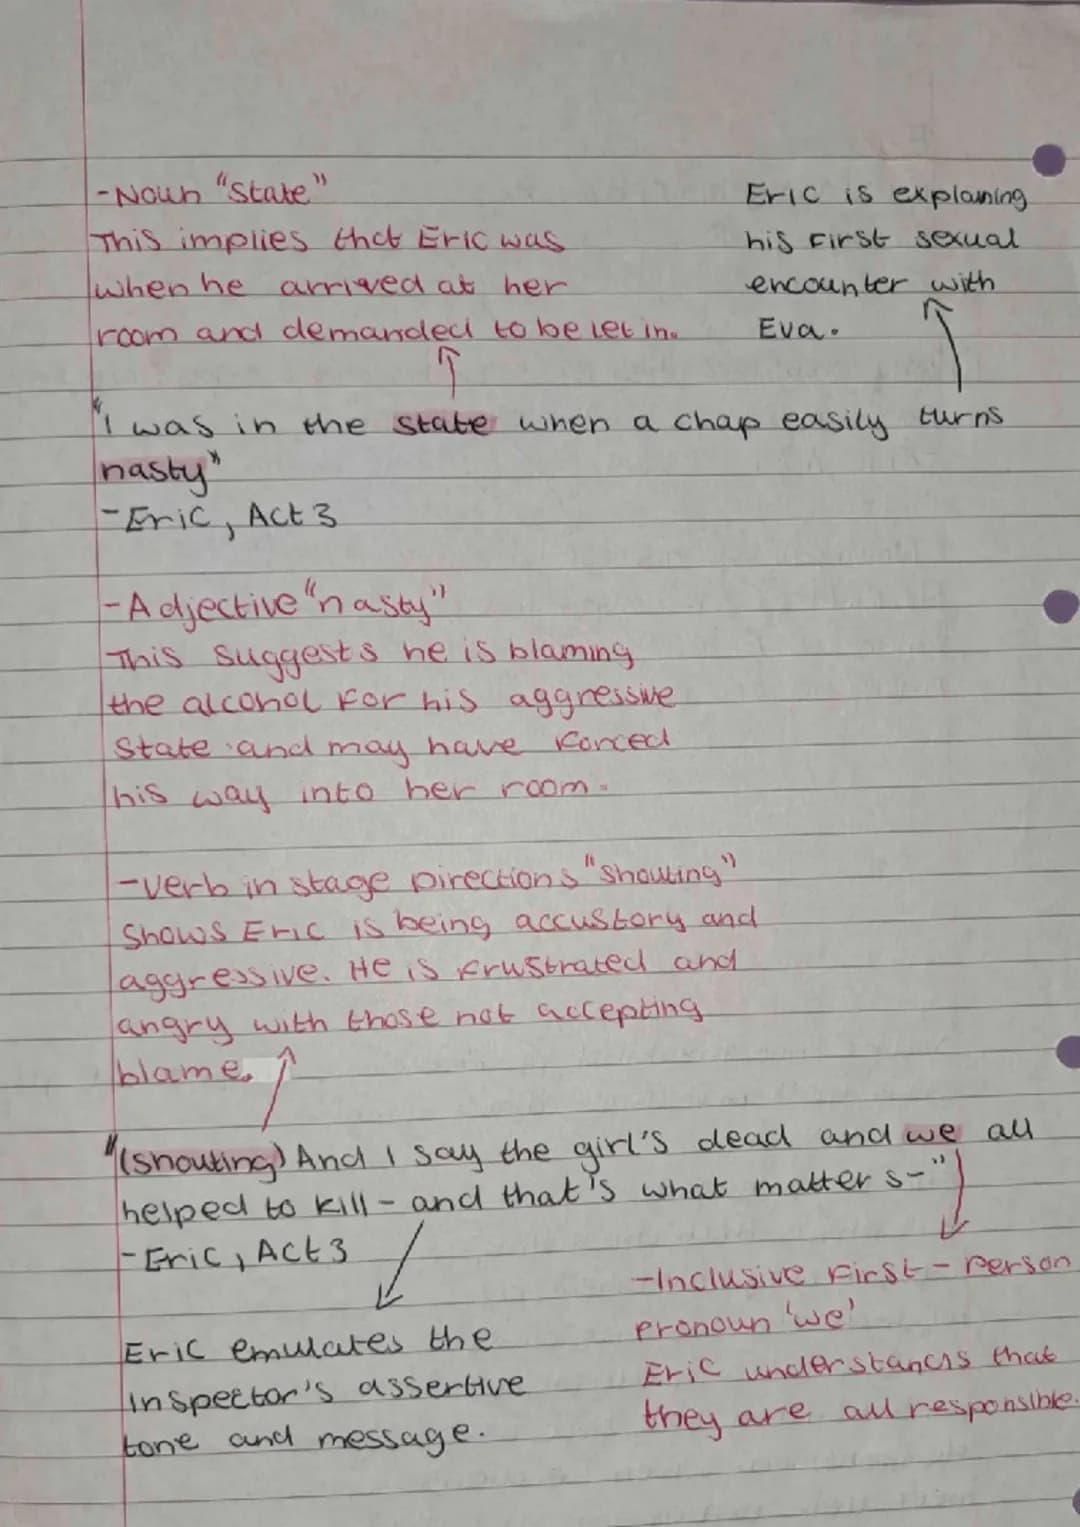 -Noun "State"
This implies that Eric was
when he arrived at her
room and demanded to be let in.
Eric is explaining
his first sexual
encounter with
Eva.
"I was in the state when a chap easily turns
nasty"
-Eric, Act 3
-Adjective "nasty"
This suggests he is blaming
the alcohol for his aggressive
State and may have forced
his way into her room.
-verb in stage Directions "Shouting"
Shows Eric is being accustory and
aggressive. He is frustrated and
angry with those not accepting
blame.
"(shouting) And I say the girl's dead and we all
helped to kill - and that's what matters-"
-Eric, Act 3
Eric emulates the
inspector's assertive
tone and message.
-Inclusive First-Person
pronoun 'we'
Eric understands that
they are all responsible.